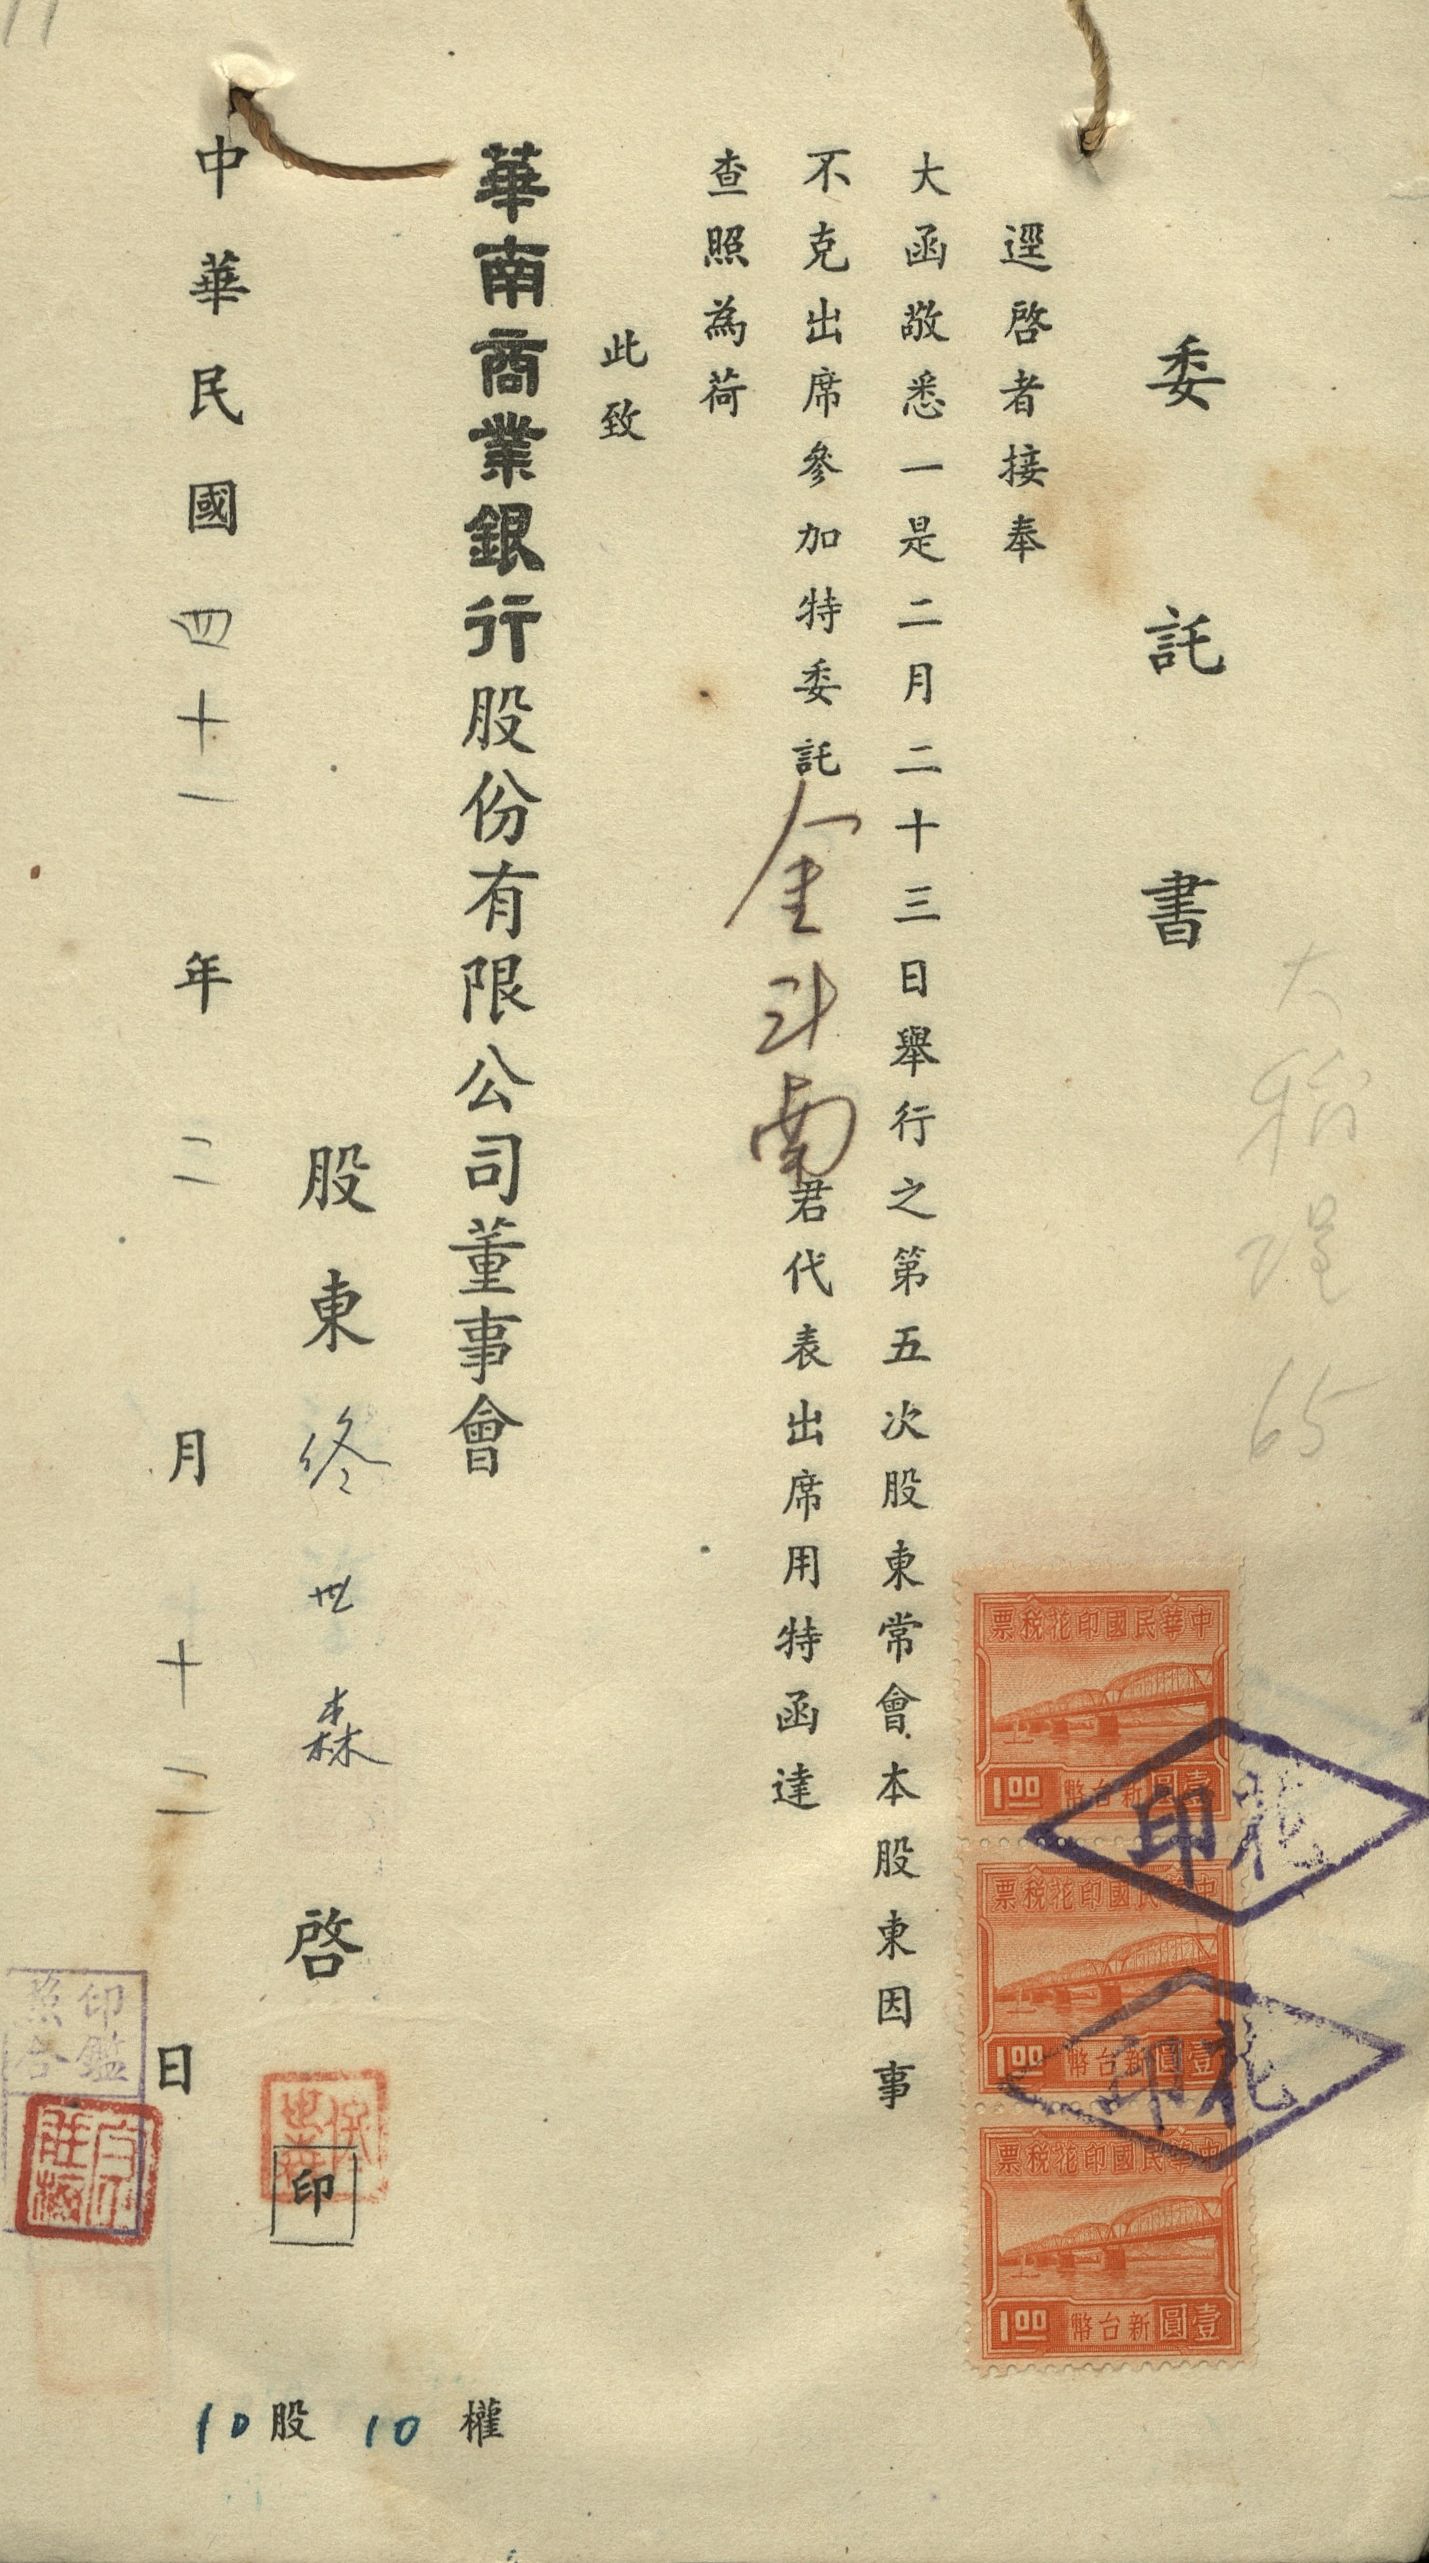 委託書
逕啓者接奉
大函敬悉一是二月二十三日舉行之第五次股東常會本股東因事
不克出席參加特委託金斗南君代表出席用特函達
查照為荷
此致
華南商業銀行股份有限公司董事會
股東 世森 啓
印
中華民國四十一年二月十二日
10股 10權
65
中華民國印花稅票
1.00 新台幣壹圓
中華民國印花稅票
1.00 新台幣壹圓
中華民國印花稅票
1.00 新台幣壹圓
印花
印花
印鑑
照合